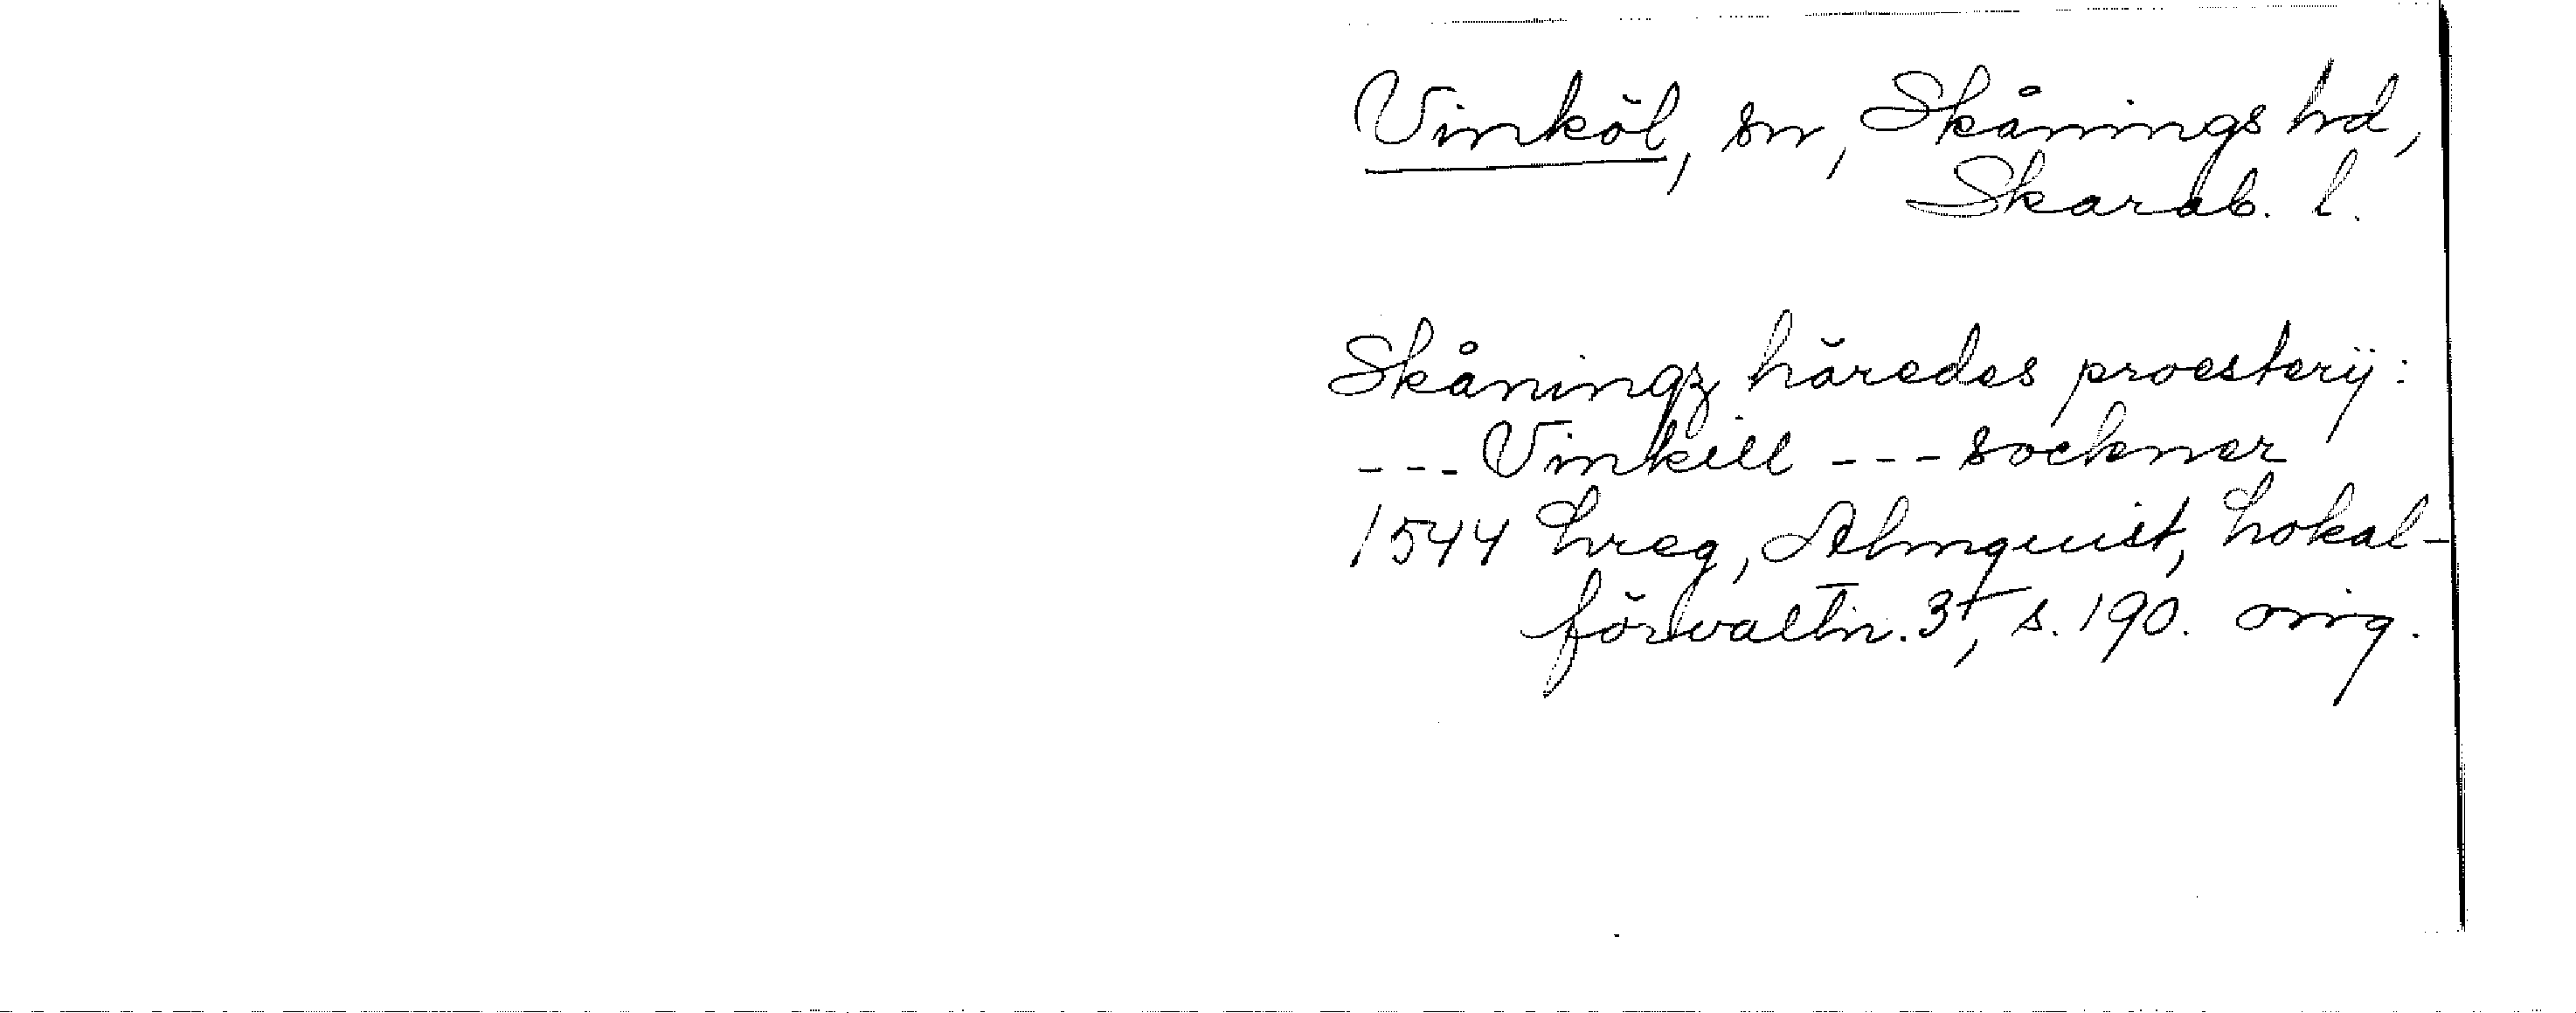 Vinköl, sn, Skånings hd,
Skarab. l.
Skåningz häredes proesterij:
--- Vinkill --- sockner
1544 Lreg, Almquist, Lokal-
förvaltn. 3†, s. 190. orig.